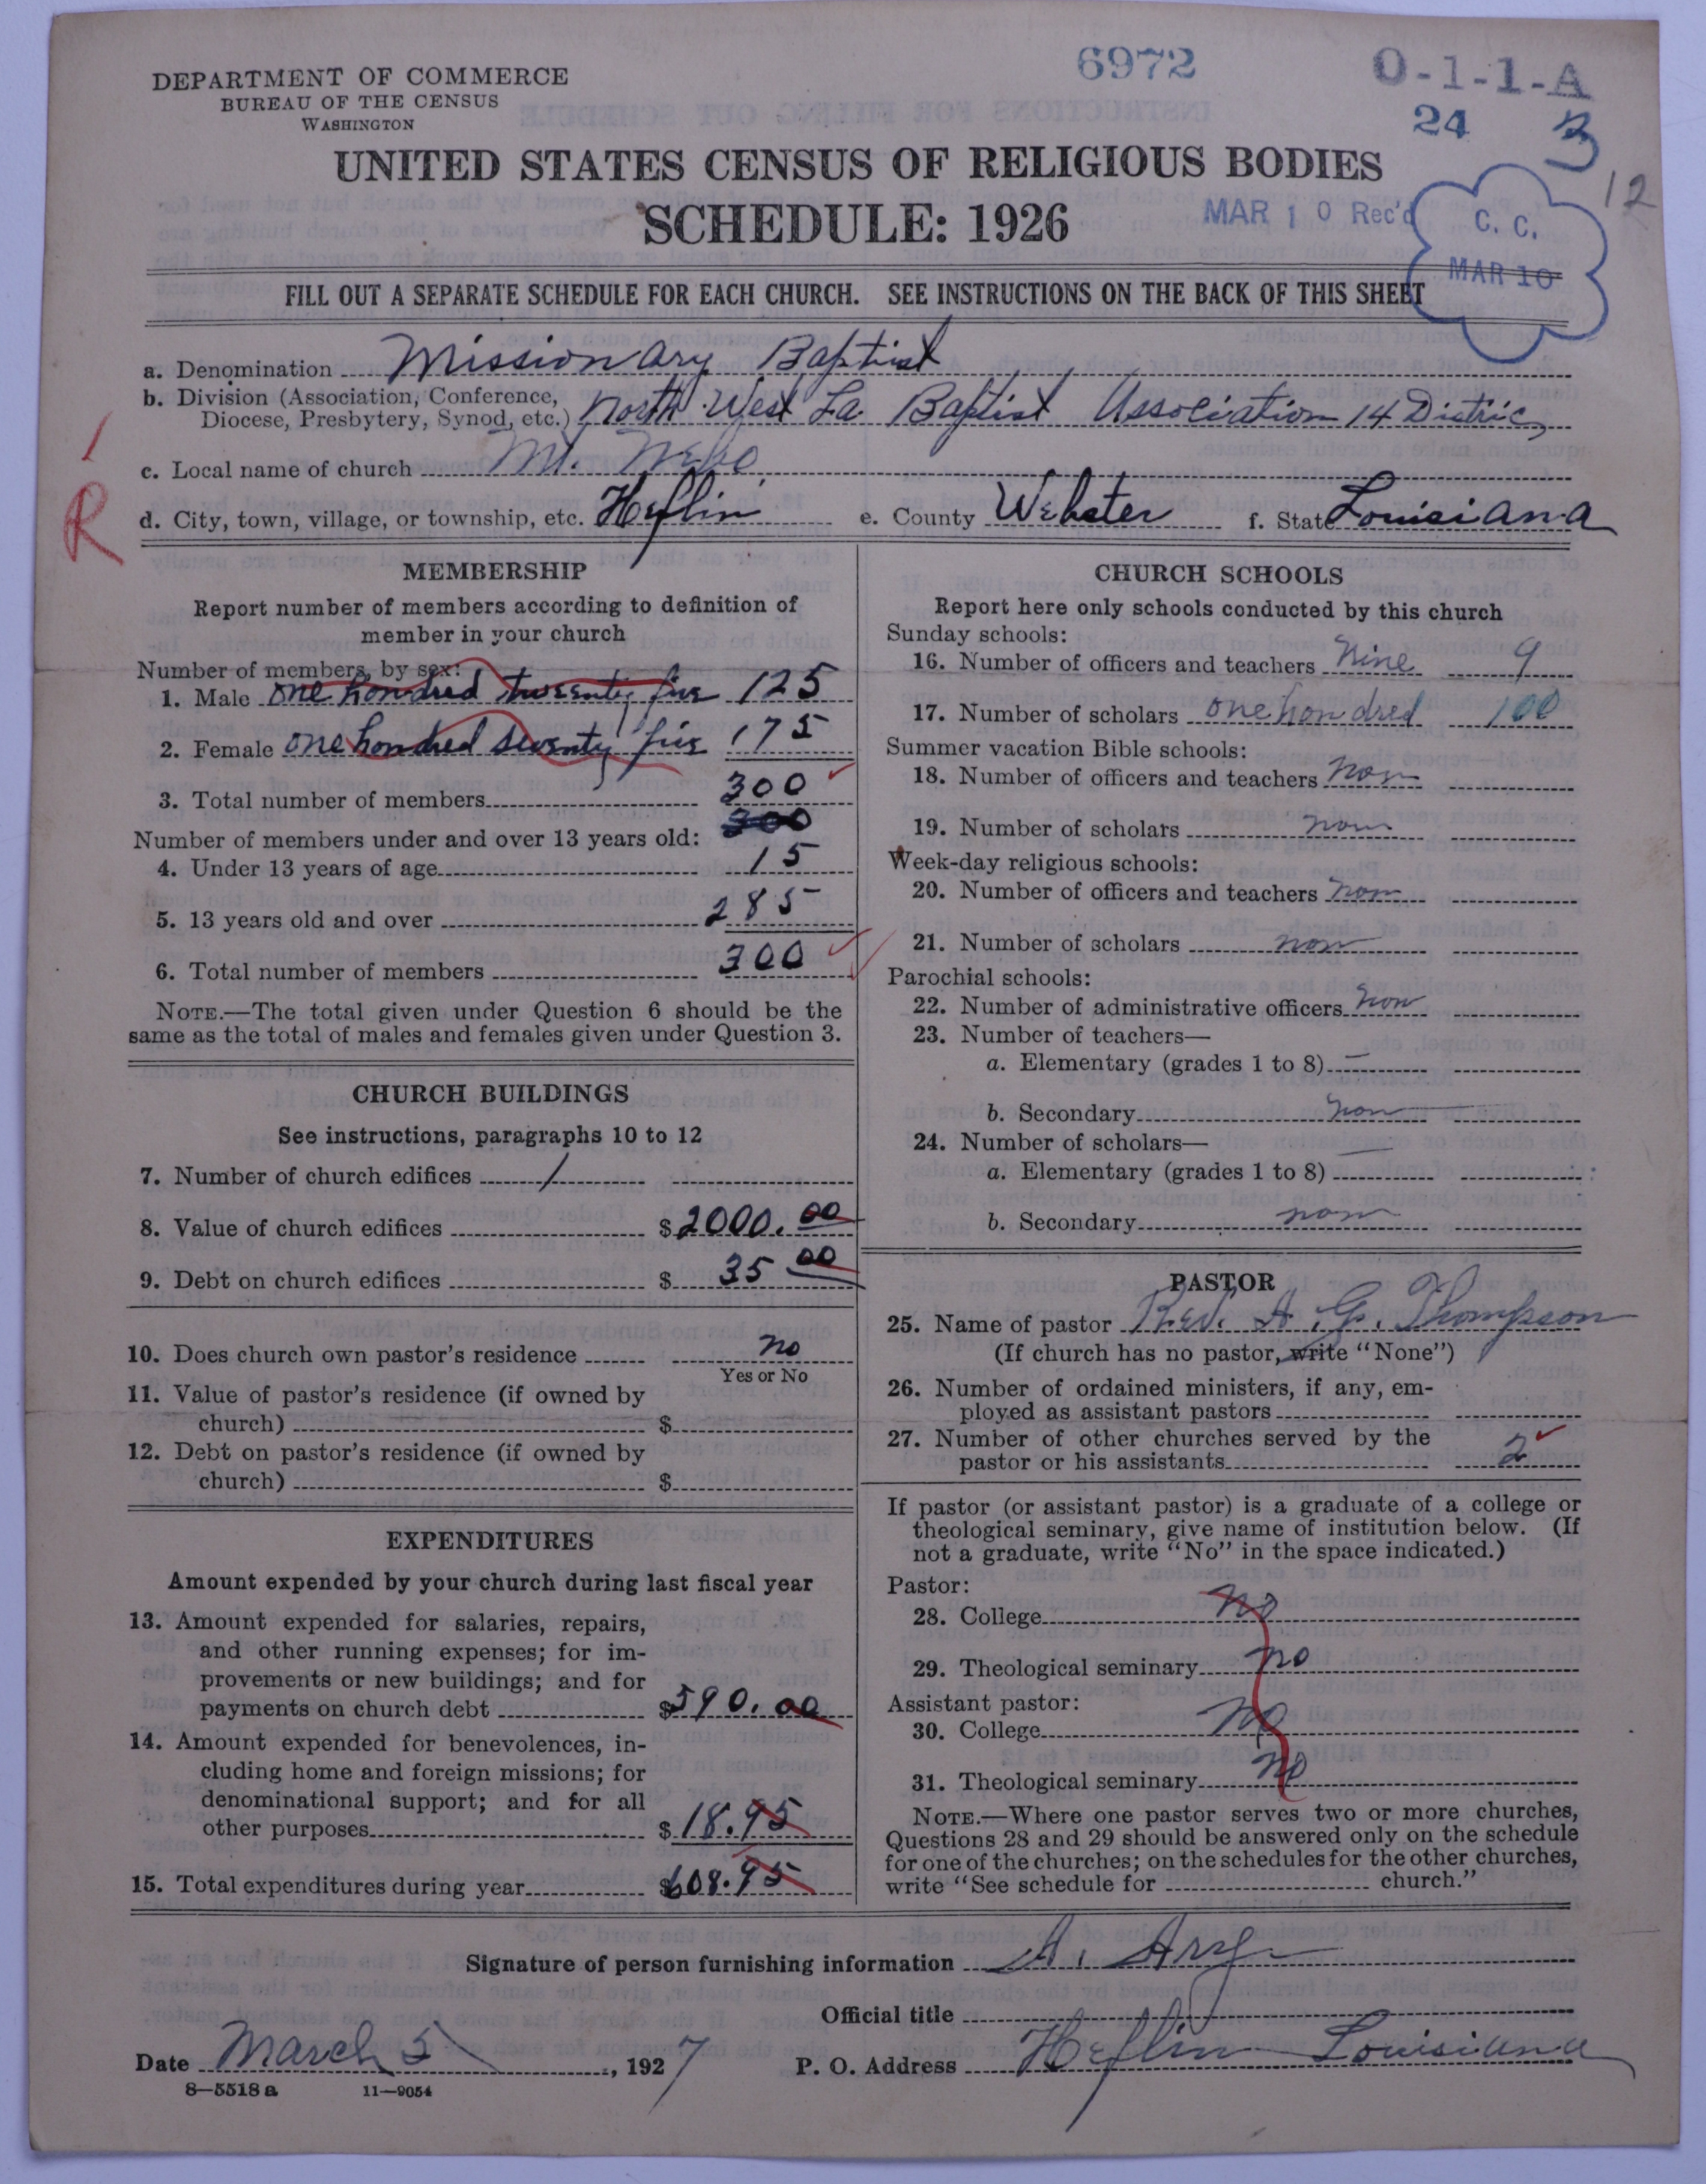 6972
O-1-1-A
DEPARTMENT OF COMMERCE
BUREAU OF THE CENSUS
WASHINGTON
24 3
12
UNITED STATES CENSUS OF RELIGIOUS BODIES
SCHEDULE: 1926
MAR 10 Rec'd
C. C.
MAR 10
FILL OUT A SEPARATE SCHEDULE FOR EACH CHURCH. SEE INSTRUCTIONS ON THE BACK OF THIS SHEET
a. Denomination Missionary Baptist
b. Division (Association, Conference,
Diocese, Presbytery, Synod, etc.) North West La. Baptist Association 14 District
c. Local name of church Mt. Nebo
R
d. City, town, village, or township, etc. Heflin e. County Webster f. State Louisiana
MEMBERSHIP
Report number of members according to definition of
member in your church
Number of members, by sex:
1. Male one hondred twenty five 125
2. Female one hondred seventy five 175
3. Total number of members 300
300
Number of members under and over 13 years old:
4. Under 13 years of age 15
5. 13 years old and over 285
6. Total number of members 300
NOTE.—The total given under Question 6 should be the
same as the total of males and females given under Question 3.
CHURCH BUILDINGS
See instructions, paragraphs 10 to 12
7. Number of church edifices 1
8. Value of church edifices $2000.00
9. Debt on church edifices $ 35 00
10. Does church own pastor's residence no
Yes or No
11. Value of pastor's residence (if owned by
church) $
12. Debt on pastor's residence (if owned by
church) $
EXPENDITURES
Amount expended by your church during last fiscal year
13. Amount expended for salaries, repairs,
and other running expenses; for im-
provements or new buildings; and for
payments on church debt $590.00
14. Amount expended for benevolences, in-
cluding home and foreign missions; for
denominational support; and for all
other purposes $18.95
15. Total expenditures during year $608.95
CHURCH SCHOOLS
Report here only schools conducted by this church
Sunday schools:
16. Number of officers and teachers Nine 9
17. Number of scholars one hondred 100
Summer vacation Bible schools:
18. Number of officers and teachers non
19. Number of scholars non
Week-day religious schools:
20. Number of officers and teachers non
21. Number of scholars non
Parochial schools:
22. Number of administrative officers non
23. Number of teachers—
a. Elementary (grades 1 to 8) —
b. Secondary non
24. Number of scholars—
a. Elementary (grades 1 to 8) —
b. Secondary non
PASTOR
25. Name of pastor Rev. A. G. Thompson
(If church has no pastor, write "None")
26. Number of ordained ministers, if any, em-
ployed as assistant pastors
27. Number of other churches served by the
pastor or his assistants 2
If pastor (or assistant pastor) is a graduate of a college or
theological seminary, give name of institution below. (If
not a graduate, write "No" in the space indicated.)
Pastor:
28. College no
29. Theological seminary no
Assistant pastor:
30. College no
31. Theological seminary no
NOTE.—Where one pastor serves two or more churches,
Questions 28 and 29 should be answered only on the schedule
for one of the churches; on the schedules for the other churches,
write "See schedule for church."
Signature of person furnishing information A. Ary
Official title
Date March 5, 1927 P. O. Address Heflin Louisiana
8—5518 a 11—9054